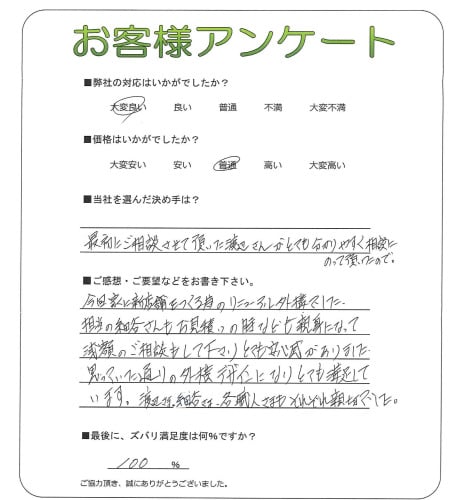 お客様アンケート
■弊社の対応はいかがでしたか？
大変良い 良い 普通 不満 大変不満
■価格はいかがでしたか？
大変安い 安い 普通 高い 大変高い
■当社を選んだ決め手は？
最初にご相談させて頂いた渡辺さんがとても分かりやすく相談に
のって頂いたので。
■ご感想・ご要望などをお書き下さい。
今回家に新店舗をつくる為のリニューアル外構でした。
担当の細谷さんもお見積りの時なども親身になって
減額のご相談もして下さりとても安心感がありました
思っていた通りの外構デザインになりとても満足して
います。渡辺さん、細谷さん、各職人さまもそれぞれ親切でした。
■最後に、ズバリ満足度は何%ですか？
100 %
ご協力頂き、誠にありがとうございました。